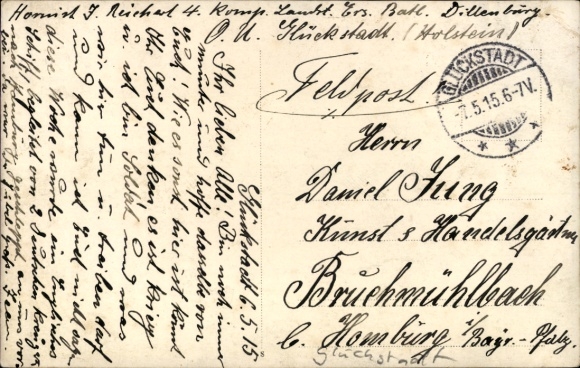 Hornist J. Reichel 4. Komp. Landst. Ers. Batl. Dillenburg.
O. U. Glückstadt. (Holstein)
Feldpost.
GLÜCKSTADT
-7.5.15.6-7V.
Herrn
Daniel Jung
Kunst & Handelsgärtner
Bruchmühlbach
b. Homburg i/ Bayr-Pfalz.
Glückstadt
Glückstadt 6.5.15
Ihr lieben Alle! Bin noch immer
munter und hoffe dasselbe von
euch! Wie es sonst hier ist könnt
Ihr Euch denken es ist Krieg
u. ich bin Soldat und was
wir hier tun u. treiben darf
und kann ich Euch nicht
diese Woche wurde ein englisches
Schiff begleitet von 2